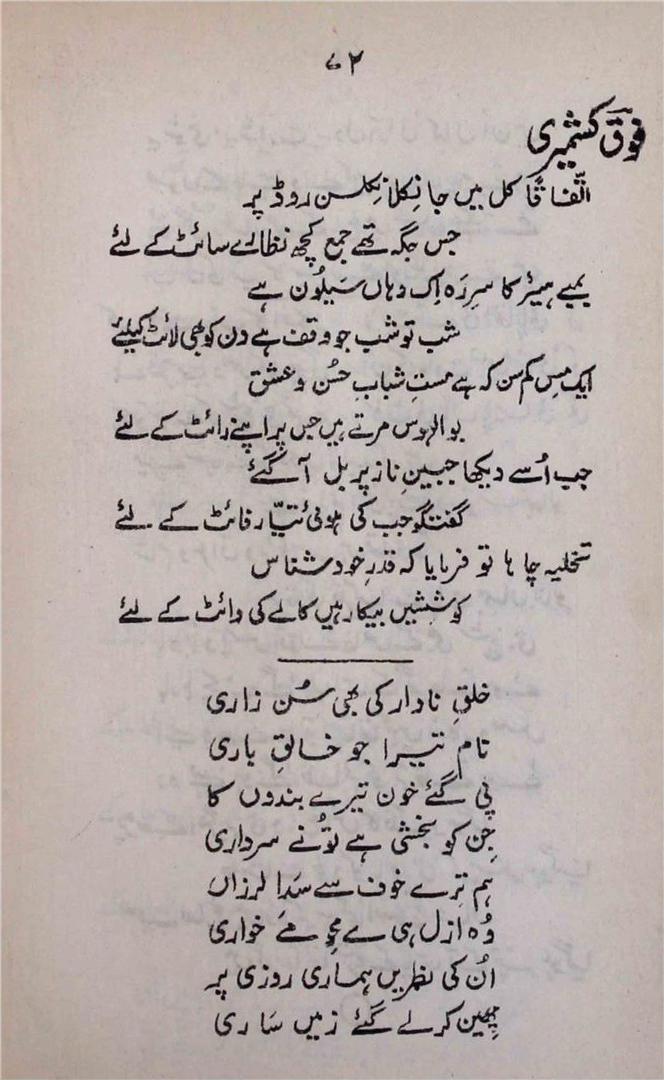 ۷۲
فوقؔ کشمیری
اتّفاقاً کل میں جا نِکلا نِکلسن روڈ پر
جس جگہ تھے جمع کچھ نظارے سائٹ کے لئے
بمبے ہیئر کا سرِ رَہ اِک وہاں سَیلُون ہے
شب تو شب جو وقف ہے دن کو بھی لائٹ کیلئے
ایک مِس کم سن کہ ہے مستِ شبابِ حُسن و عشق
بوالہوس مرتے ہیں جس پر اپنے رائٹ کے لئے
جب اُسے دیکھا جبینِ ناز پر بل آ گئے
گفتگو جب کی ہوئی تیّار فائٹ کے لئے
تخلیہ چاہا تو فرمایا کہ قدرِ خود شناس
کوشِشیں بیکار ہیں کالے کی وائٹ کے لئے
خلقِ نادار کی بھی سُن زاری
نام تیرا جو خالقِ باری
پی گئے خون تیرے بندوں کا
جِن کو بخشی ہے تُو نے سرداری
ہم تِرے خوف سے سَدا لرزاں
وُہ ازل ہی سے محوِ مَے خواری
اُن کی نظریں ہماری روزی پر
چھین کر لے گئے زمیں سَاری